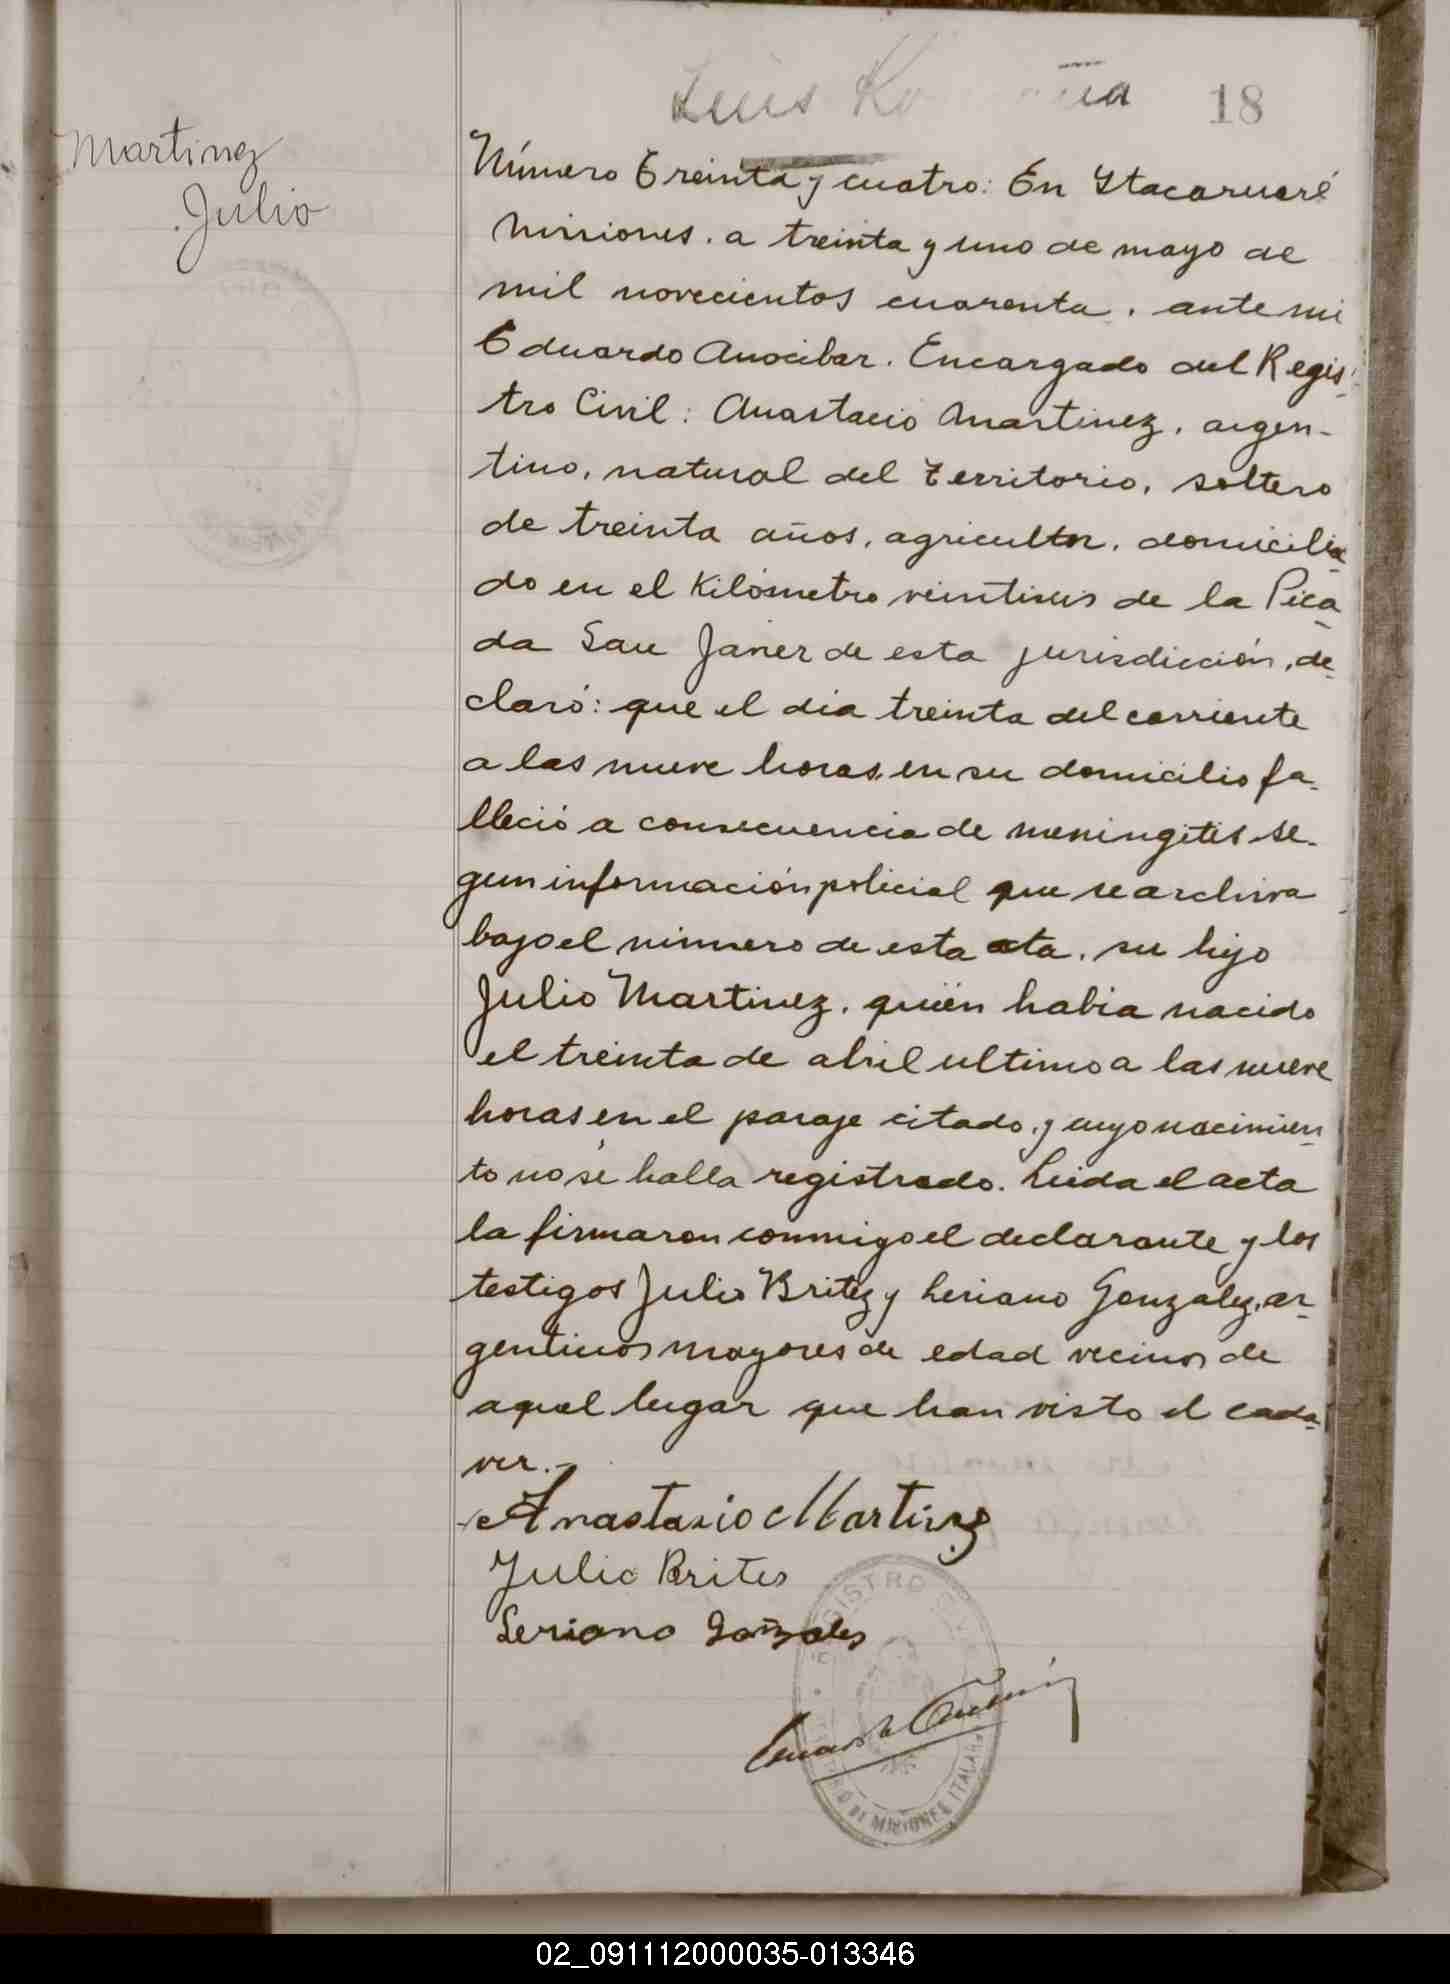 Luis
18
Martinez
Julio
Número Treinta y cuatro: En Itacaruaré
Misiones. a treinta y uno de mayo de
mil novecientos cuarenta, ante mi
Eduardo Anocibar. Encargado del Regis-
tro Civil: Anastacio Martinez, argen-
tino, natural del Territorio, soltero
de treinta años, agricultor, domicilia
do en el Kilómetro veintiseis de la Pica
da San Javier de esta jurisdicción, de-
claró: que el dia treinta del corriente
a las nueve horas, en su domicilio fa-
lleció a consecuencia de meningitis se-
gun información policial que se archiva
bajo el número de esta acta, su hijo
Julio Martinez, quién habia nacido
el treinta de abril ultimo a las nueve
horas en el paraje citado, y cuyo nacimien
to no sé halla registrado. Leida el acta
la firmaron conmigo el declarante y los
testigos Julio Britez y Leriano Gonzalez, ar
gentinos mayores de edad vecinos de
aquel lugar que han visto el cada-
ver.-
Anastasio Martinez
Julio Brites
Leriano Gonzales
REGISTRO CIVIL
MISIONES ITACAR
02_091112000035-013346